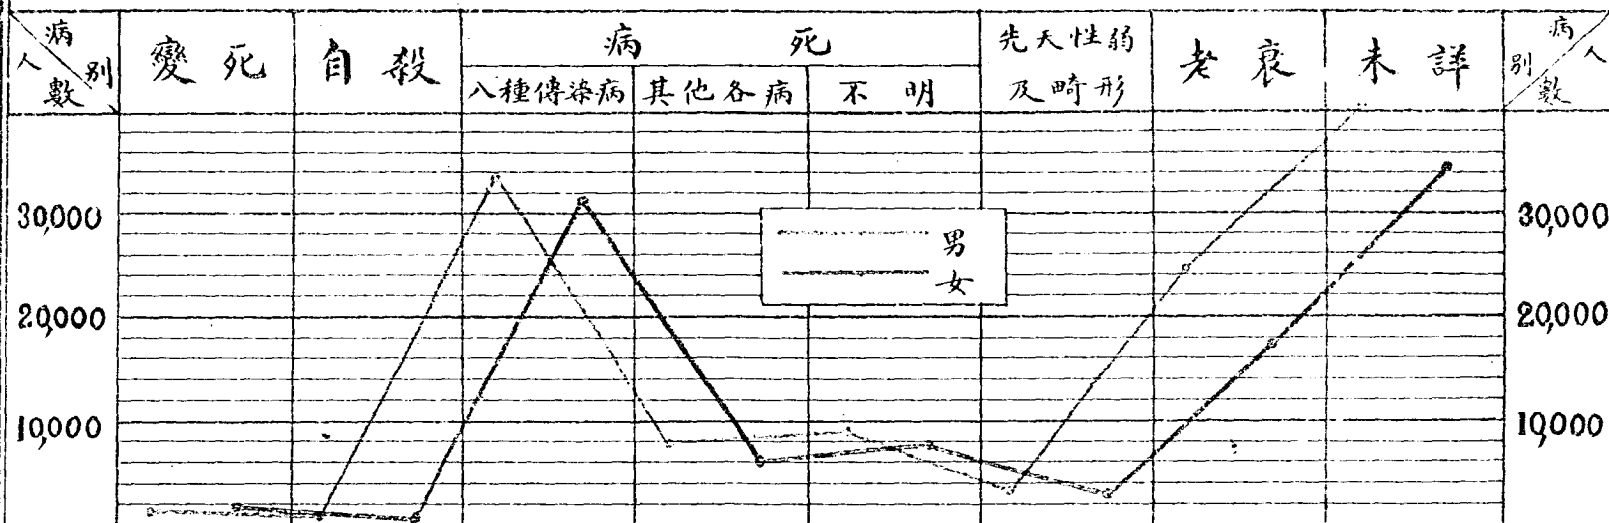 病別 人數
變死
自殺
病死
八種傳染病
其他各病
不明
先天性弱
及畸形
老衰
未詳
病別 人數
30,000
20,000
10,000
男
女
30,000
20,000
10,000